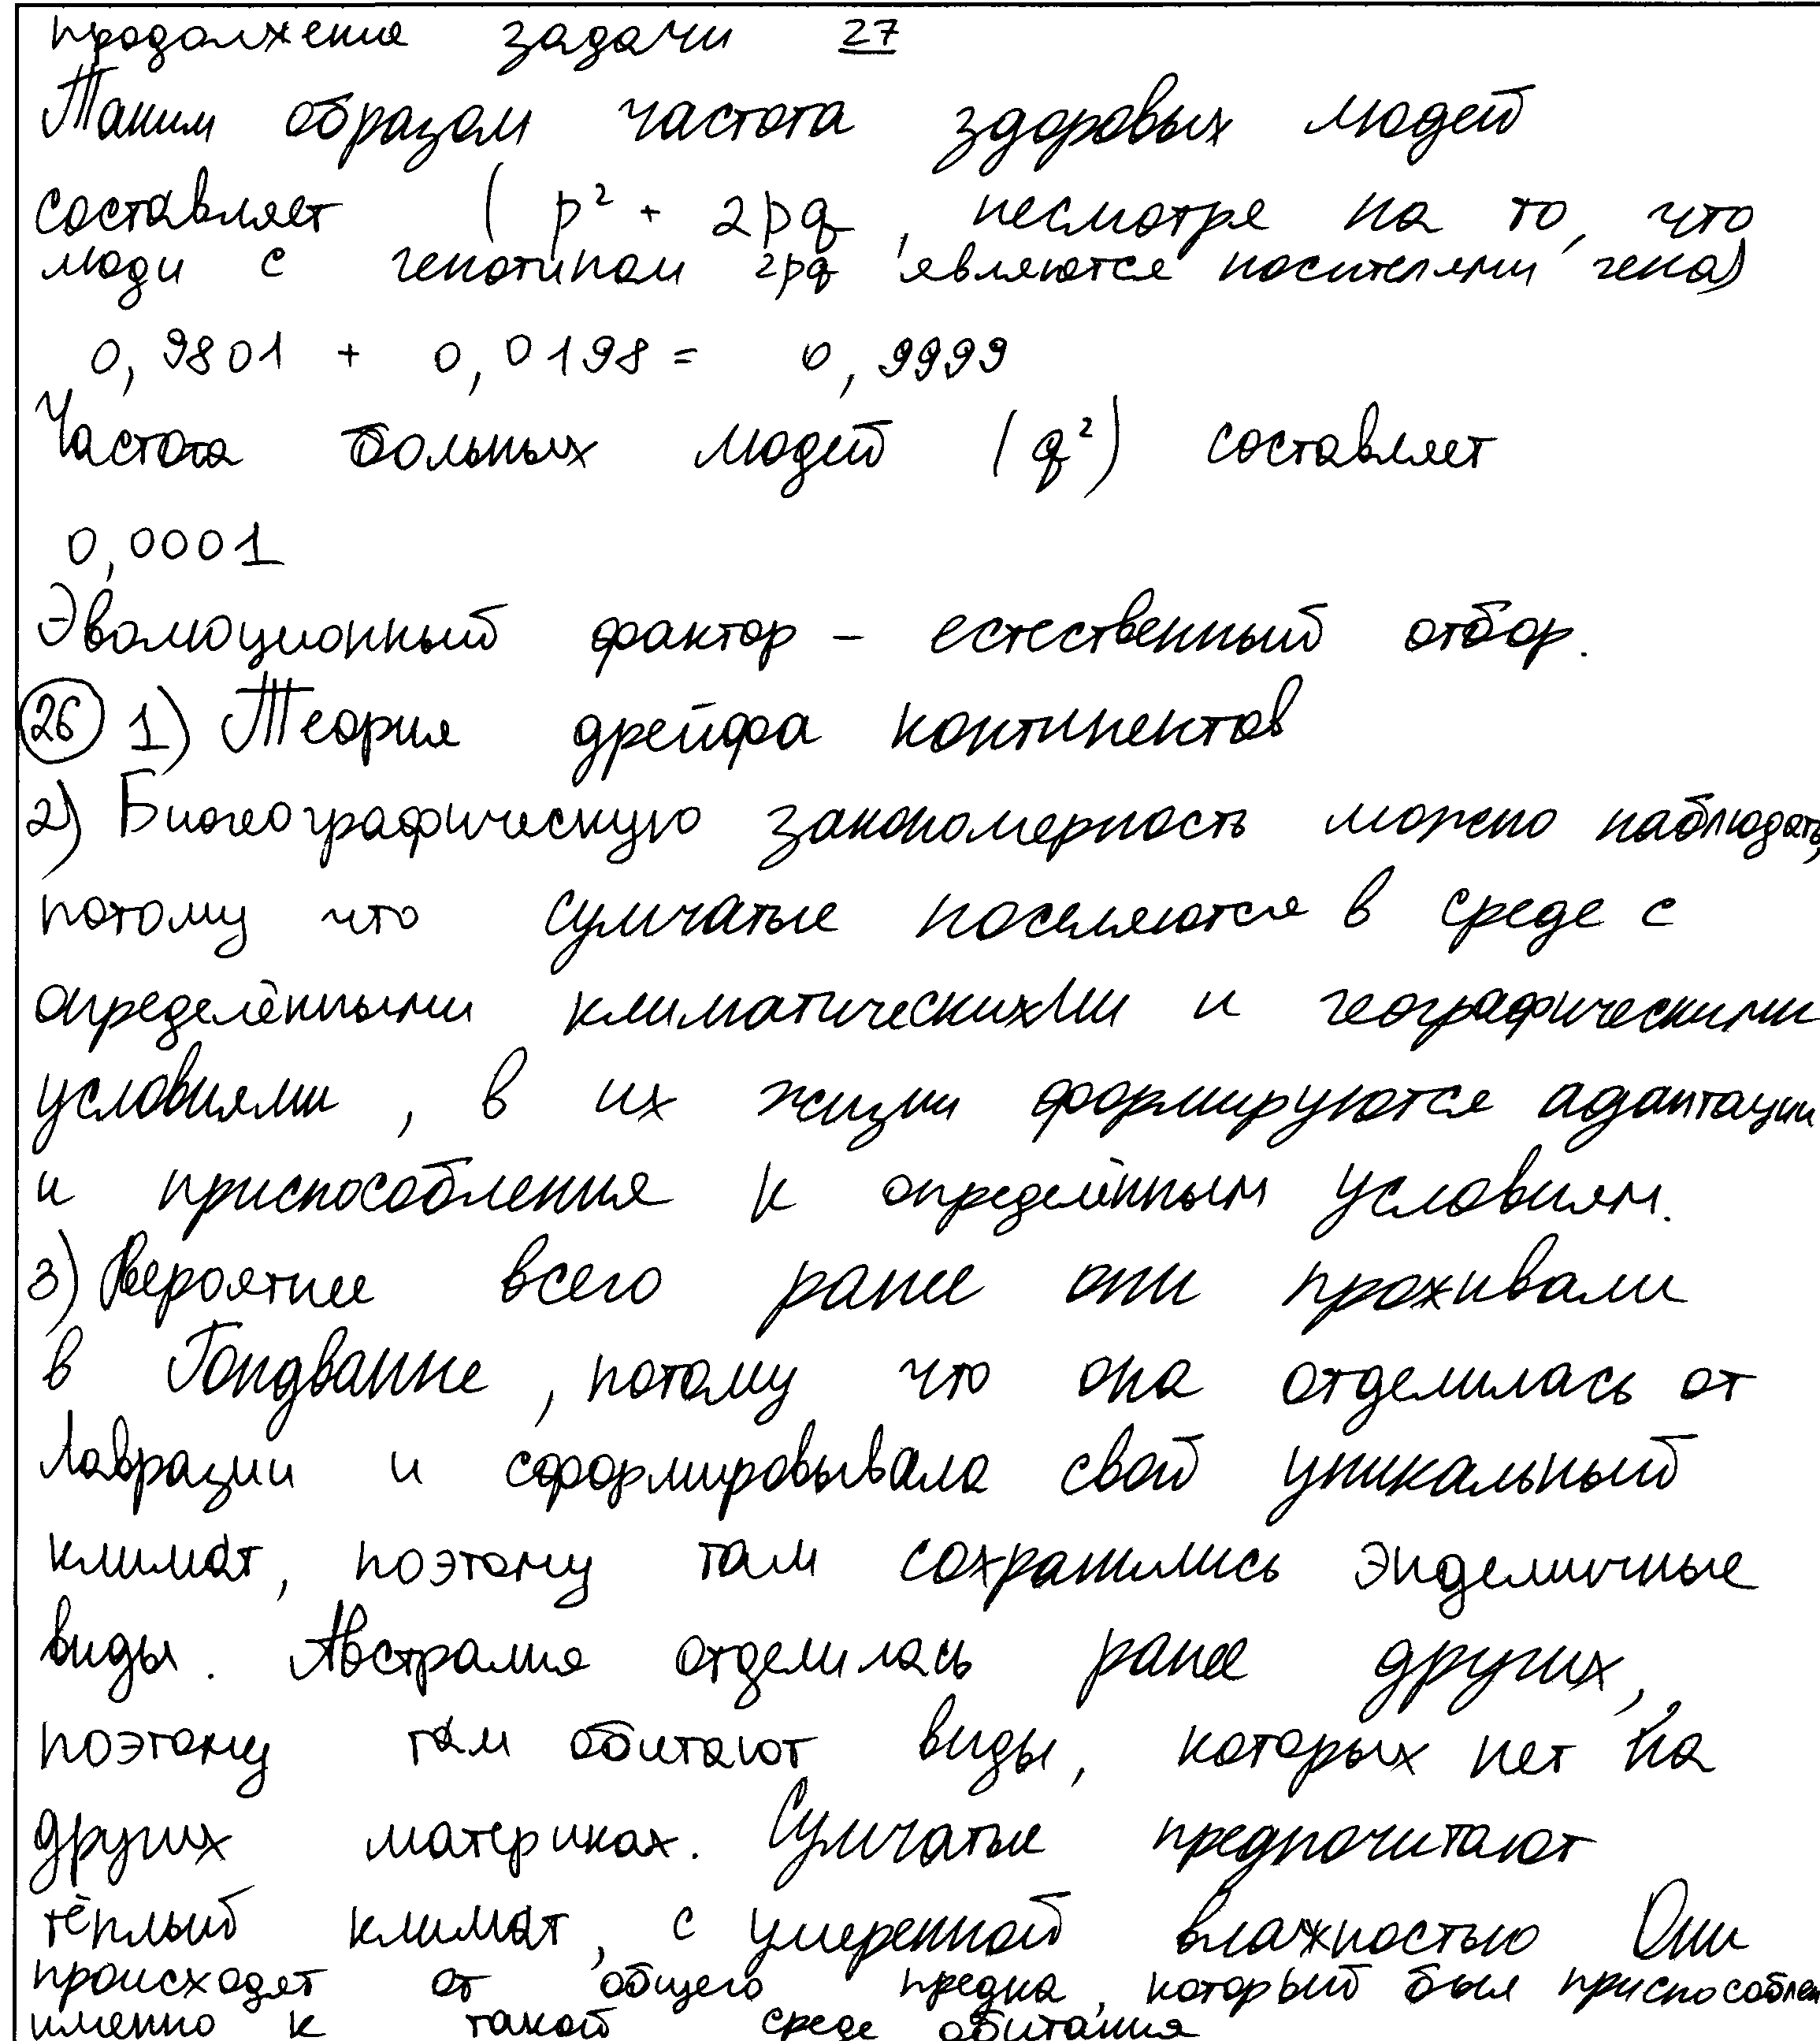 продолжение задачи 27
Таким образом частота здоровых людей
составляет ( p² + 2pq , несмотря на то, что
люди с генотипом 2pq являются носителями гена)
0,9801 + 0,0198 = 0,9999
Частота больных людей (q²) составляет
0,0001
Эволюционный фактор – естественный отбор.
26 1) Теория дрейфа континентов
2) Биогеографическую закономерность можно наблюдать,
потому что сумчатые поселяются в среде с
определёнными климатическими и географическими
условиями, в их жизни формируются адаптации
и приспособления к определённым условиям.
3) Вероятнее всего ранее они проживали
в Гондванне, потому что она отделилась от
Лавразии и сформировывала свой уникальный
климат, поэтому там сохранились эндемичные
виды. Австралия отделилась ранее других,
поэтому там обитают виды, которых нет на
других материках. Сумчатые предпочитают
тёплый климат, с умеренной влажностью Они
происходят от общего предка, который был приспособлен
именно к такой среде обитания